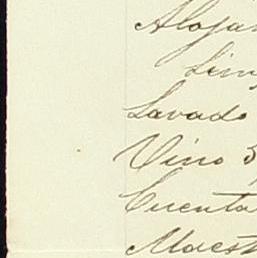 Alojam
Lim
Lavado
Vino 3
Cuenta
Maest